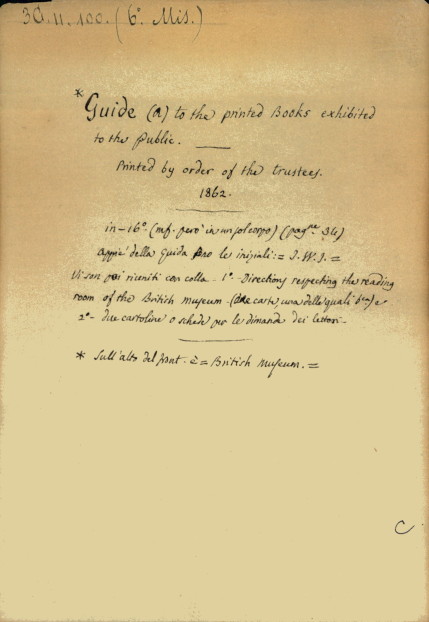 30.11.100. (6°. Mis.)
*Guide (a) to the printed Books exhibited
to the public. —
Printed by order of the trustees.
1862.
in-16°. (mf. però in un sol corpo) (pagne 34)
appiè della Guida le iniziali: = J. W. J. =
Vi son poi riuniti con colla - 1°. Directions respecting the reading
room of the British museum - (due carte, una delle quali bca) e
2°- due cartoline o schede per le dimande dei lettori-
* Sull'alto del front. è = British Museum. =
C